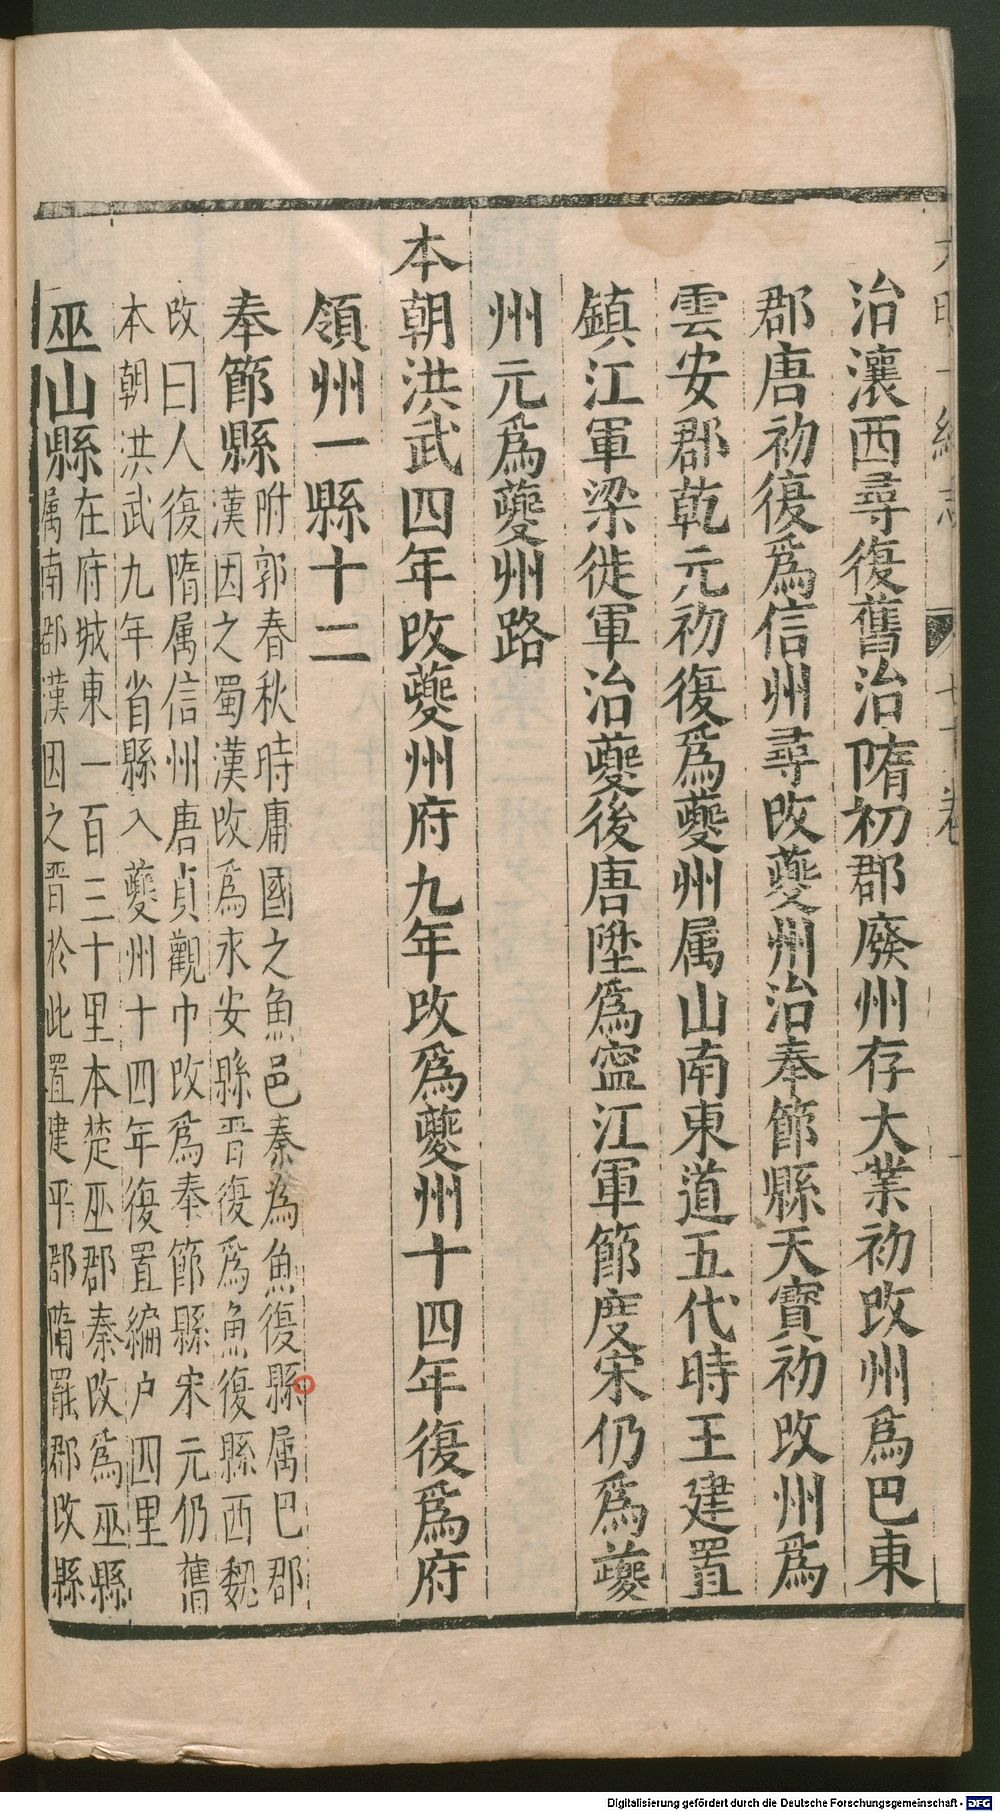 治瀼西尋復舊治隋初郡廢州存大業初改州爲巴東
郡唐初復爲信州尋改夔州治奉節縣天寶初改州爲
雲安郡乾元初復爲夔州属山南東道五代時王建置
鎮江軍梁徙軍治夔後唐陞爲寧江軍節度宋仍爲夔
州元爲夔州路
本朝洪武四年改夔州府九年改爲夔州十四年復爲府
領州一縣十二
奉節縣
附郭春秋時庸國之魚邑秦爲魚復縣属巴郡
漢因之蜀漢改爲永安縣晋復爲魚復縣西魏
改曰人復隋属信州唐貞觀中改爲奉節縣宋元仍舊
本朝洪武九年省縣入夔州十四年復置編户四里
巫山縣
在府城東一百三十里本楚巫郡秦改爲巫縣
属南郡漢因之晋於此置建平郡隋罷郡改縣
Digitalisierung gefördert durch die Deutsche Forschungsgemeinschaft - DFG